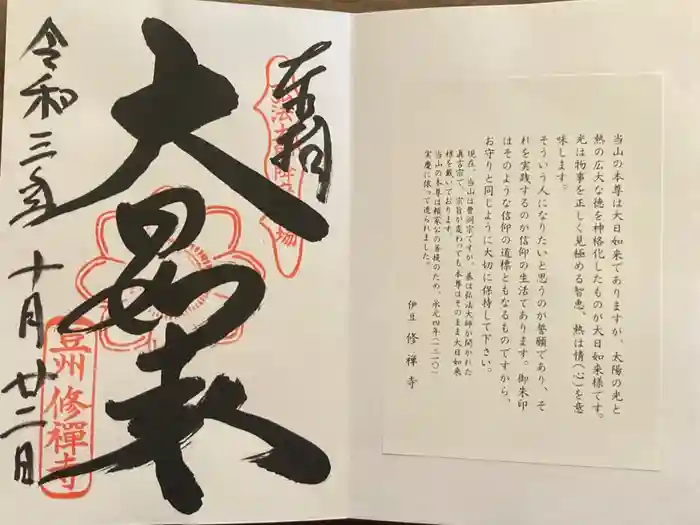 当山の本尊は大日如来でありますが、太陽の光と
熱の広大な徳を神格化したものが大日如来様です。
光は物事を正しく見極める智恵、熱は情(心)を意
味します。
そういう人になりたいと思うのが誓願であり、そ
れを実践するのが信仰の生活であります。御朱印
はそのような信仰の道標ともなるものですから、
お守りと同じように大切に保持して下さい。
現在、当山は曹洞宗ですが、基は弘法大師が開かれた
真言宗で、宗旨が変わっても本尊はそのまま大日如来
様を戴いております。
当山の本尊は頼家公の菩提のため、承元四年(一二一〇)
実慶に依って造られました。
伊豆 修禅寺
奉拝
大日如来
令和三年 十月廿二日
豆州 修禪寺